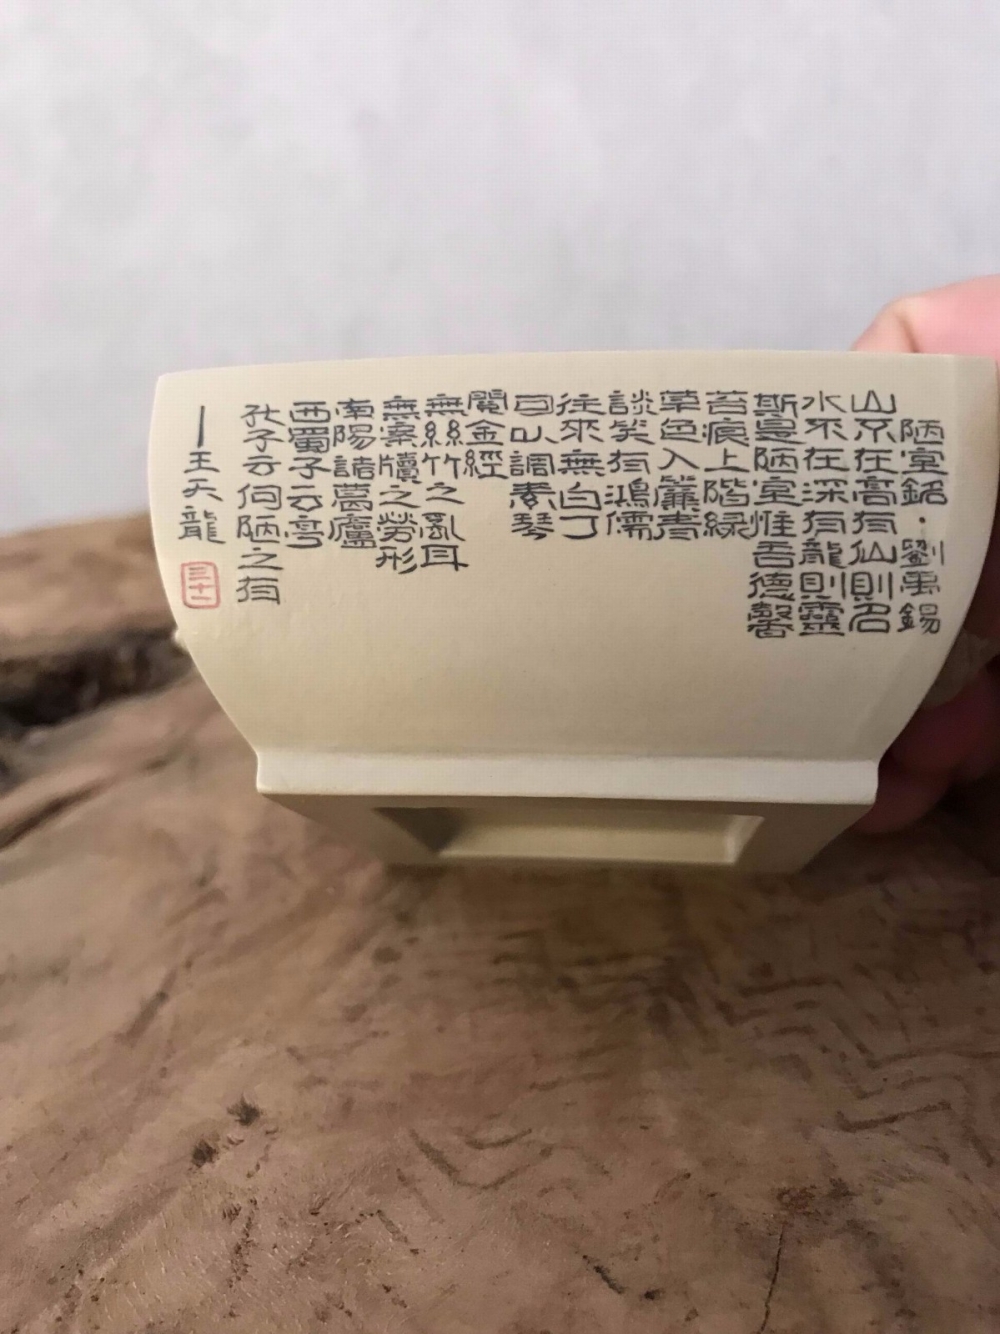 陋室銘·劉禹錫
山不在高有仙則名
水不在深有龍則靈
斯是陋室惟吾德馨
苔痕上階緑
草色入簾青
談笑有鴻儒
往來無白丁
可以調素琴
閱金經
無絲竹之亂耳
無案牘之勞形
南陽諸葛廬
西蜀子云亭
孔子云何陋之有
—王天龍
三十二